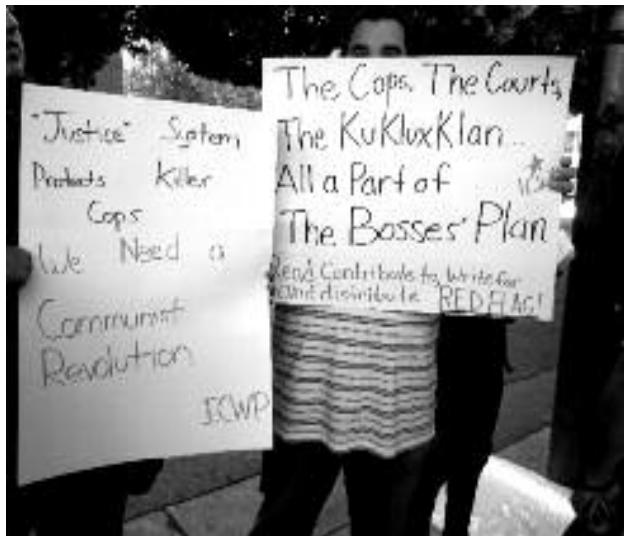 "Justice" System
Protects Killer
Cops
We Need a
Communist
Revolution
ICWP
The Cops, The Courts,
The KuKluxKlan...
All a Part of
The Bosses' Plan
Read, Contribute to, Write for
and distribute RED FLAG!